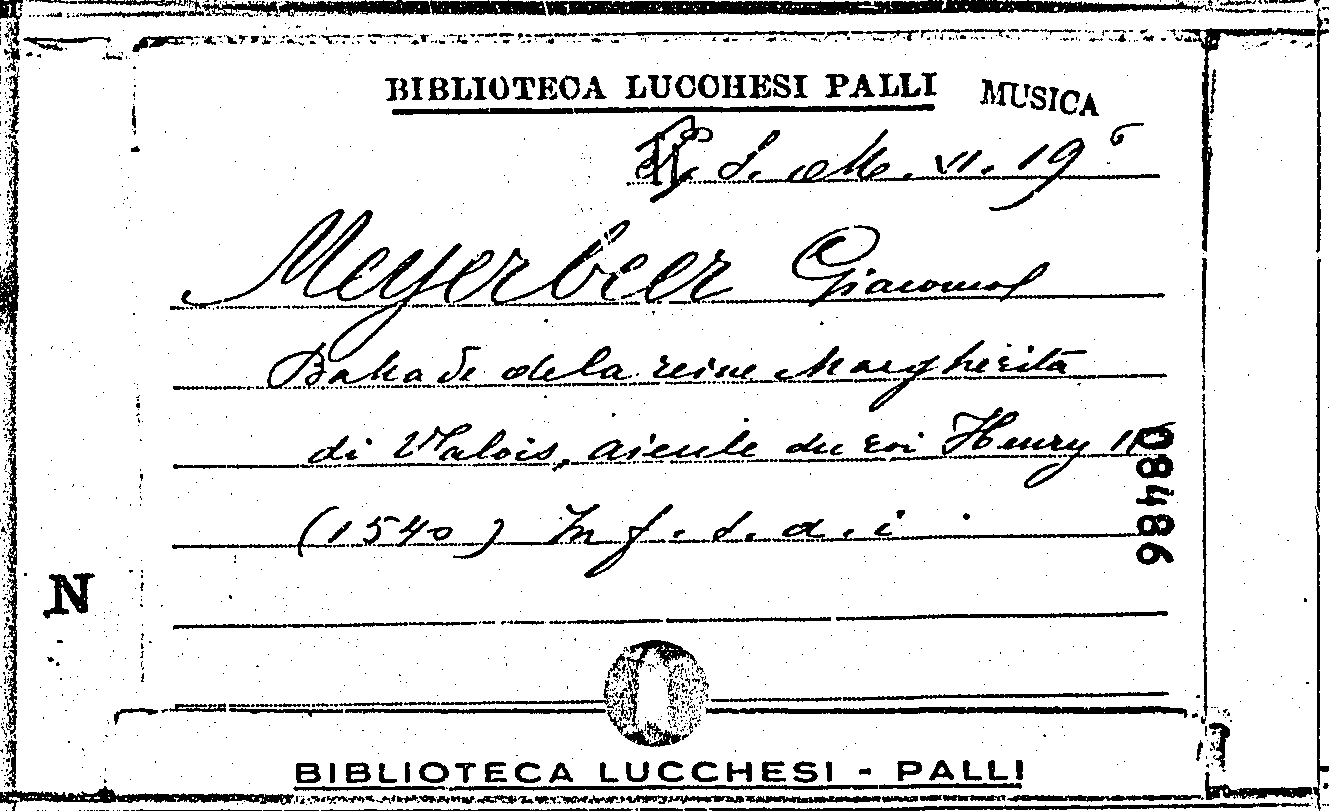 BIBLIOTECA LUCCHESI PALLI MUSICA
S. M. VI. 19 6
Meyerbeer Giacomo
Ballade de la reine Margherita
di Valois, aieule du roi Henry
(1540) In f. s. d. i.
08486
N
BIBLIOTECA LUCCHESI - PALLI